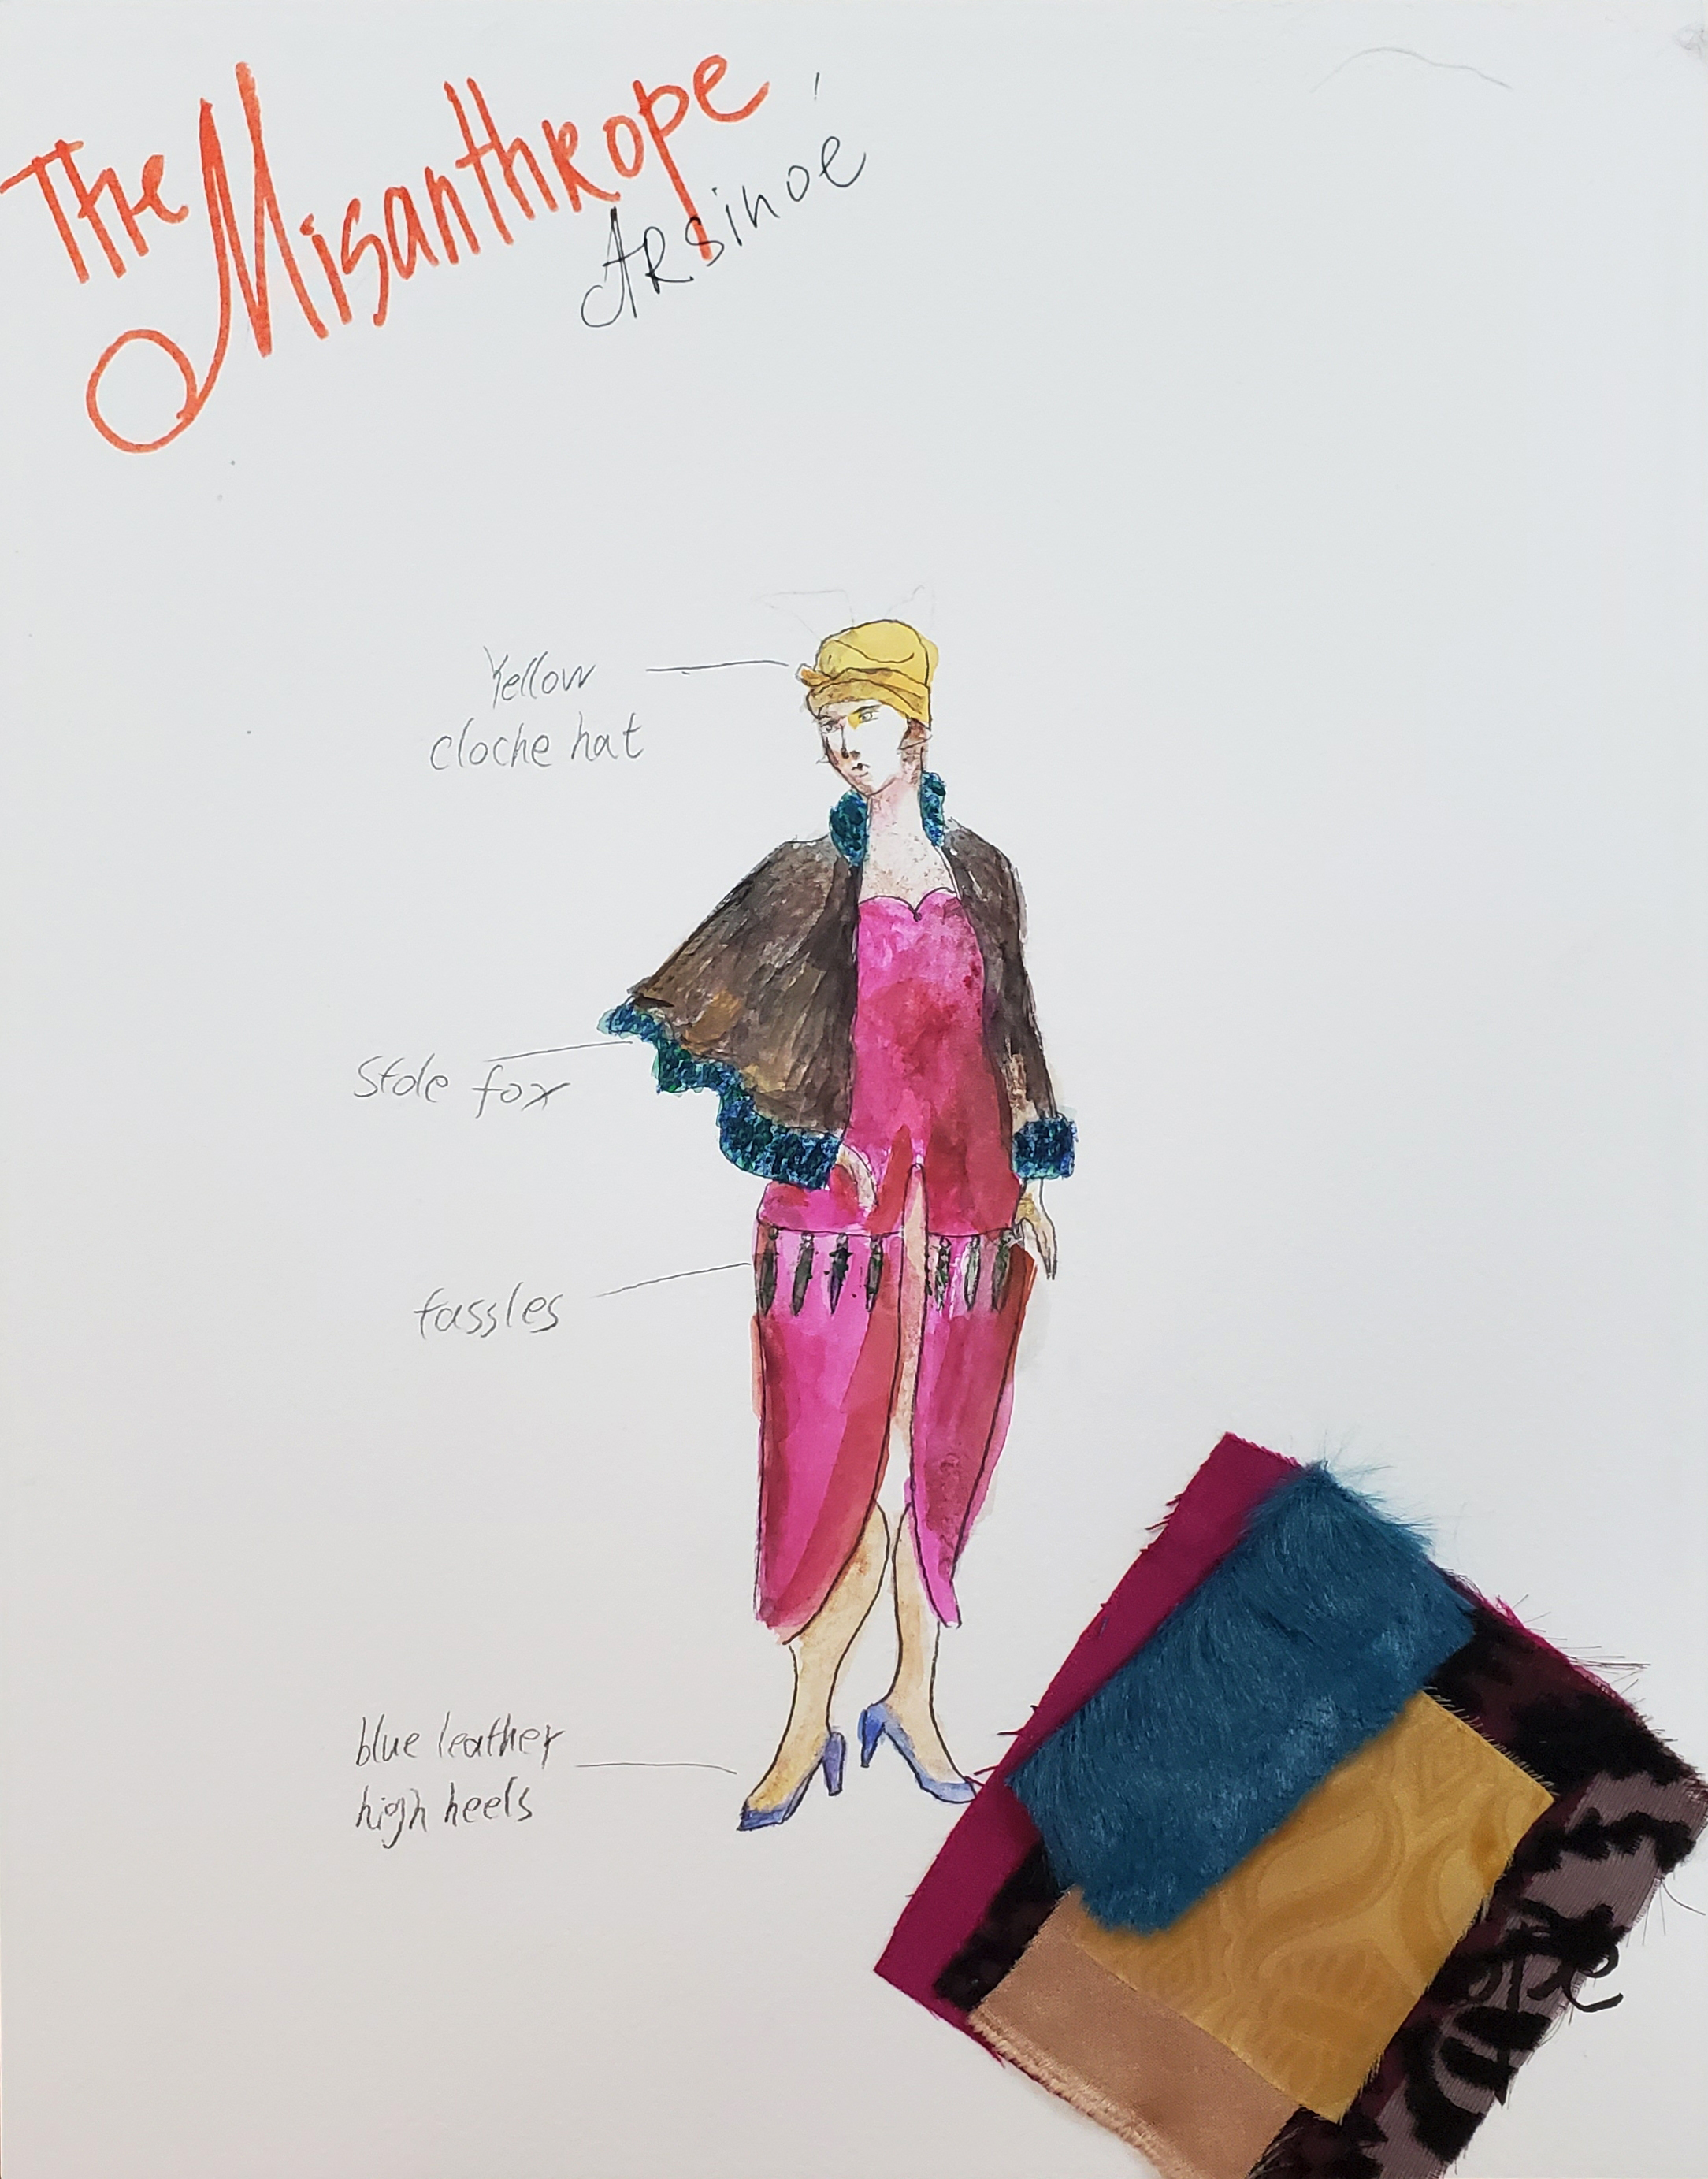 The Misanthrope
Arsinoe
Yellow
cloche hat
Stole fox
tassles
blue leather
high heels